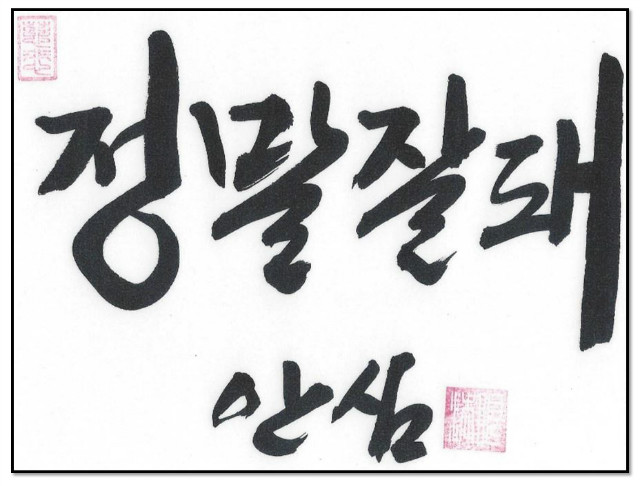 정말잘돼
안심